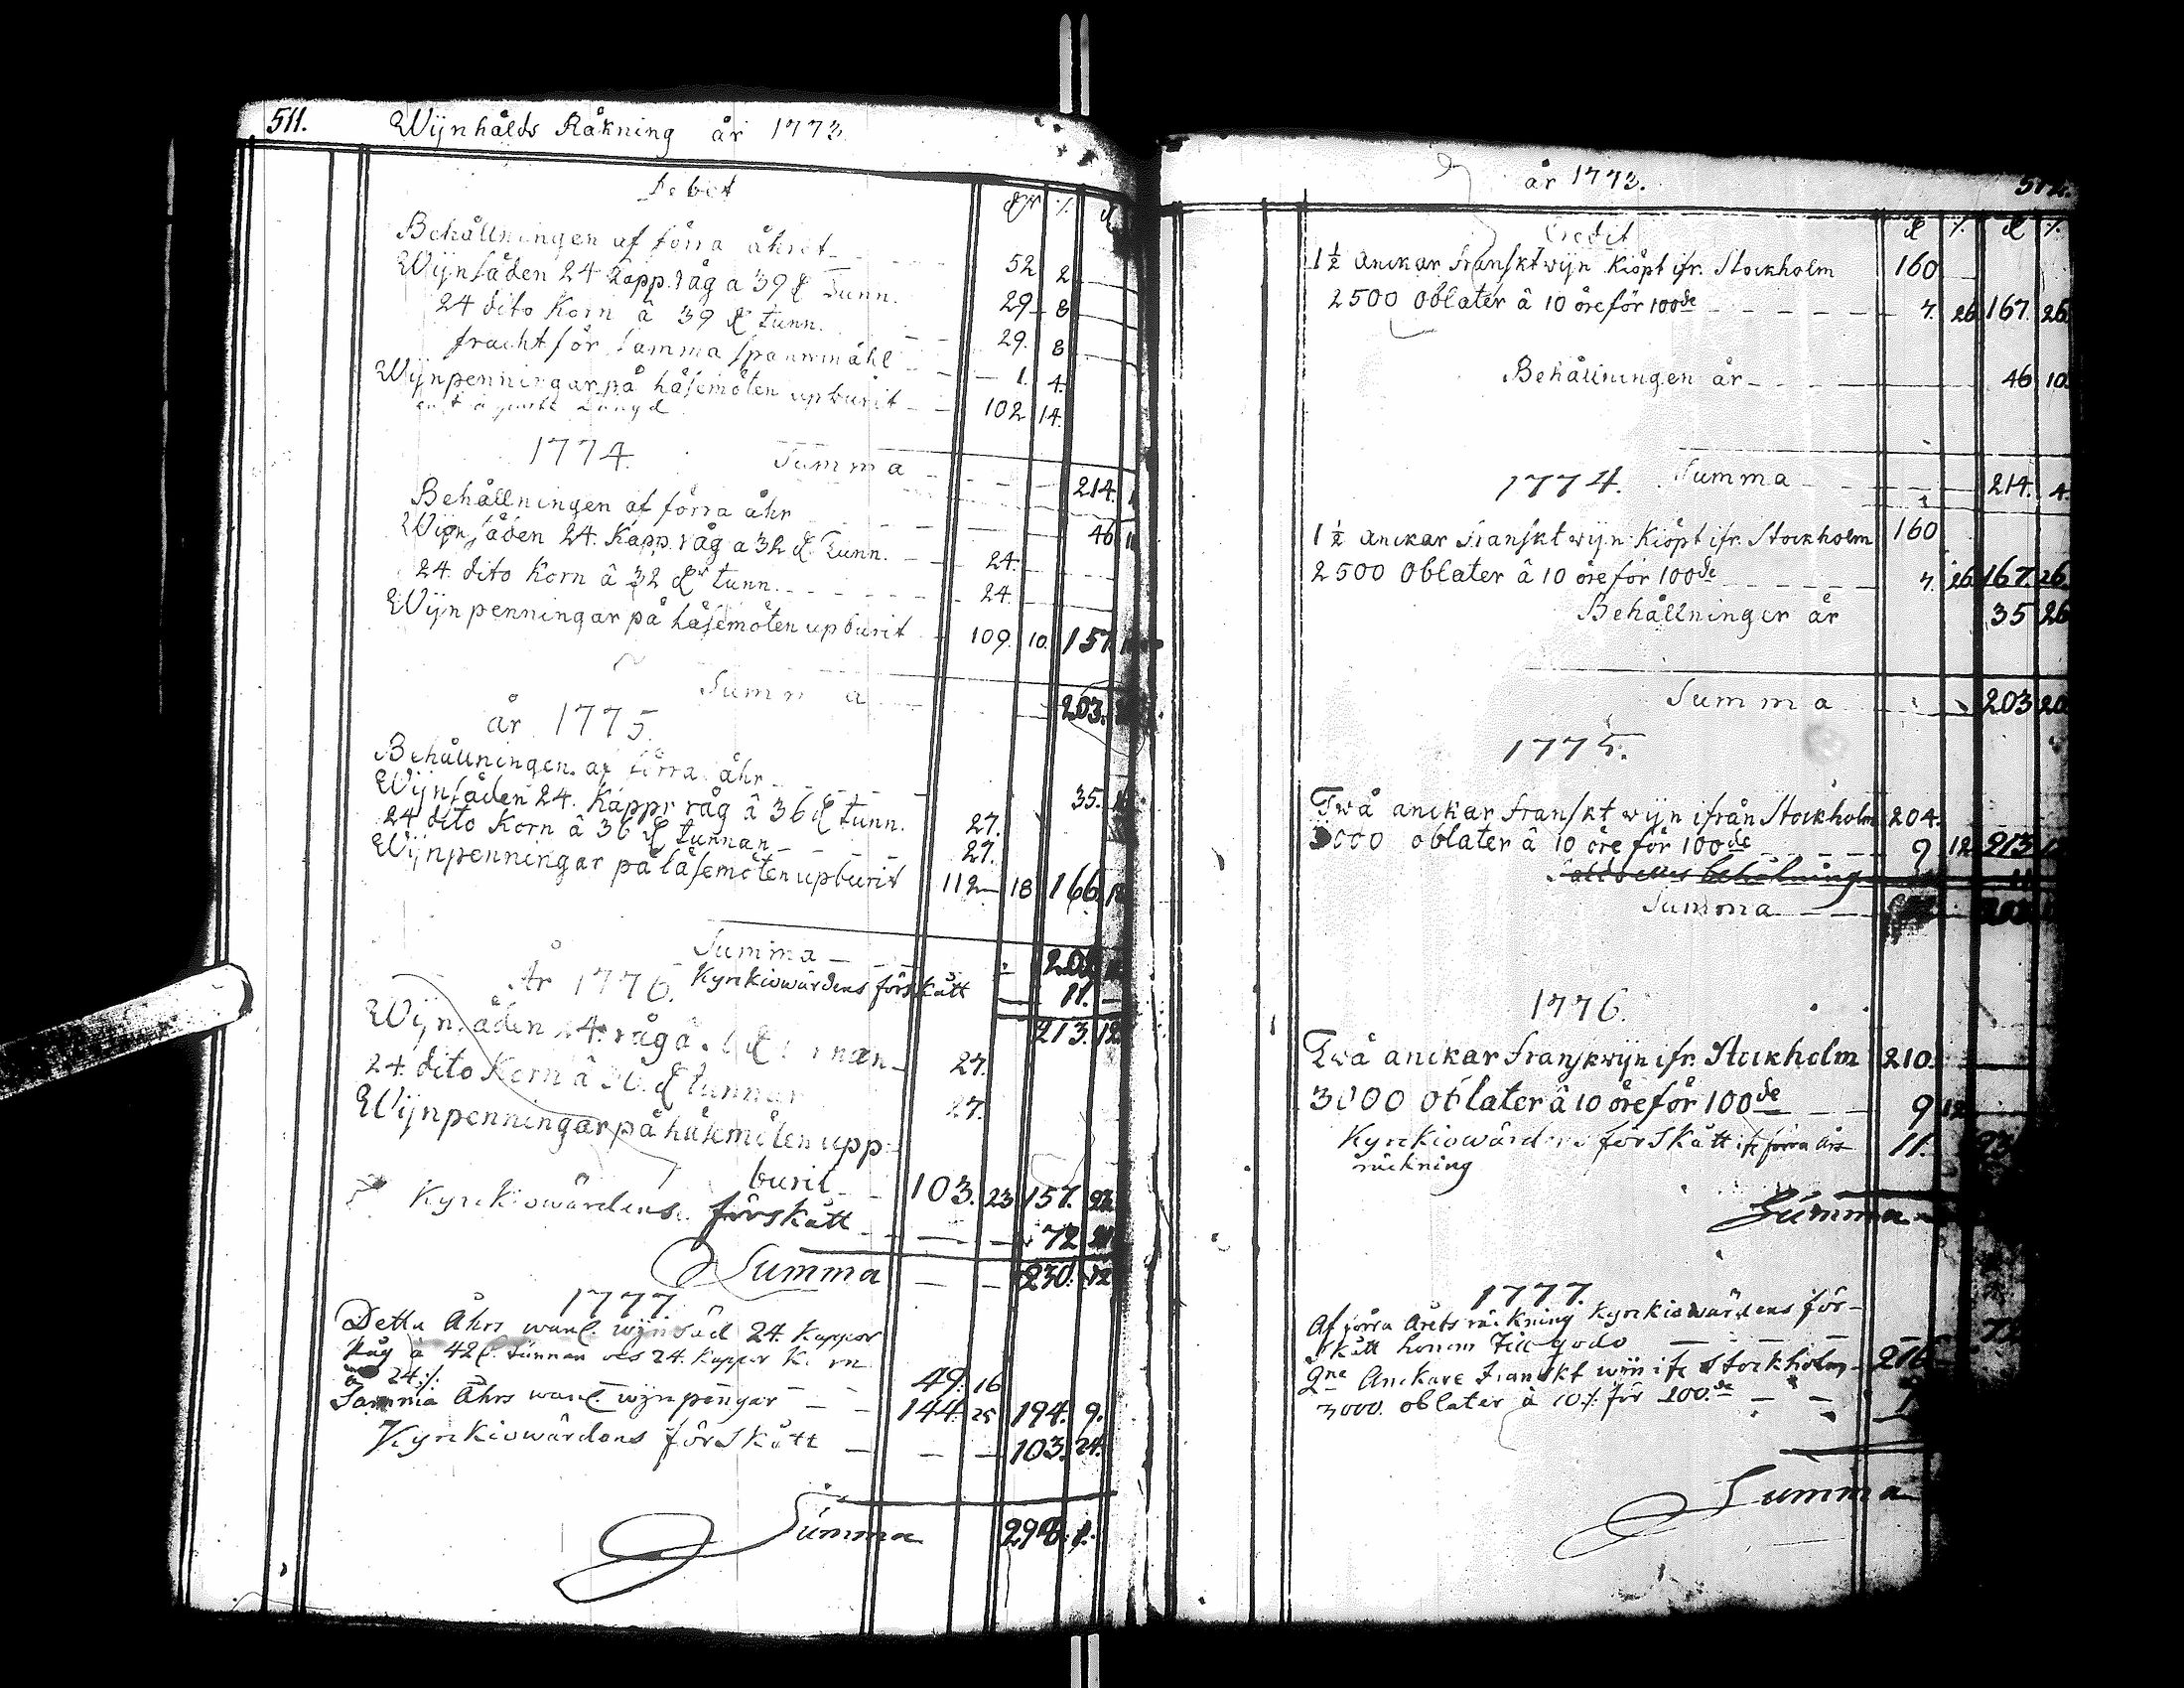 511. Wijnhålds Räkning år 1773
Debet
Behållningen af förra åhret 52 2
Wijnsäden 24 Kapp. råg a 39 d tunn. 29 8
24 dito Korn â 39 d tunn. 29. 8
fracht för samma spannmåhl 1. 4
Wijnpenningar på håsemöten upburit 102 14.
Längd
1774. Summa 214.
Behållningen af förra åhr 46
Wijnsåden 24. Kapp. råg a 32 d. tunn. 24.
24. dito Korn â 32 dr tunn. 24.
Wijnpenningar på håsemöten upburit 109. 10. 157.
Summa 203.
år 1775.
Behållningen af förra åhr 35.
Wijnsåden 24. Kappr råg â 36 d tunn. 27.
24 dito Korn â 36 d tunnan 27.
Wijnpenningar på låsemöten upburit 112 18 166. 18
Summa
År 1776. Kyrkiowärdens förskått 11.
213. 12
Wijnsåden 24. råg â 27.
24. dito Korn â d tunnan 27.
Wijnpenningar på håsemöten upp-
burit 103. 23 157. 23
Kyrkiowärdens förskått 72
Summa 230. 12
1777
Detta Åhrs wijnsäd 24. Kappor
Råg à 42 d. tunnan och 24. Kappor
à 24 49. 16
Samma Åhrs wijnpengar 144. 25 194. 9.
Kyrkiowärdens förskått 103. 24.
Summa 298. 1.
år 1773. 512.
Credit
1 1/2 anckar franskt wijn kiöpt ifr. Stockholm 160
2500 oblater â 10 öre för 100de 7. 26 167. 26
Behållningen är 46 10.
1774. Summa 214. 4.
1 1/2 anckar franskt wijn kiöpt ifr. Stockholm 160
2500 oblater â 10 öre för 100de 7. 26 167. 26.
Behållningen är 35 26
Summa 203 20
1775.
Twå anckar franskt wijn ifrån Stockholm 204.
3000 oblater â 10 öre för 100de 9 12 213
behålning
Summa
1776.
Twå anckar franskwijn ifr. Stockholm 210.
3000 oblater â 10 öre för 100de 9 12
Kyrkiowärdens förskått ifr förra års 11.
räckning
Summa
1777.
Af förra Årets räckning Kyrkiowärdens för-
skått honom till godo
2ne Anckare Franskt wijn ifr Stockholm 216
3000. oblater à 10 för 100.de
Summa